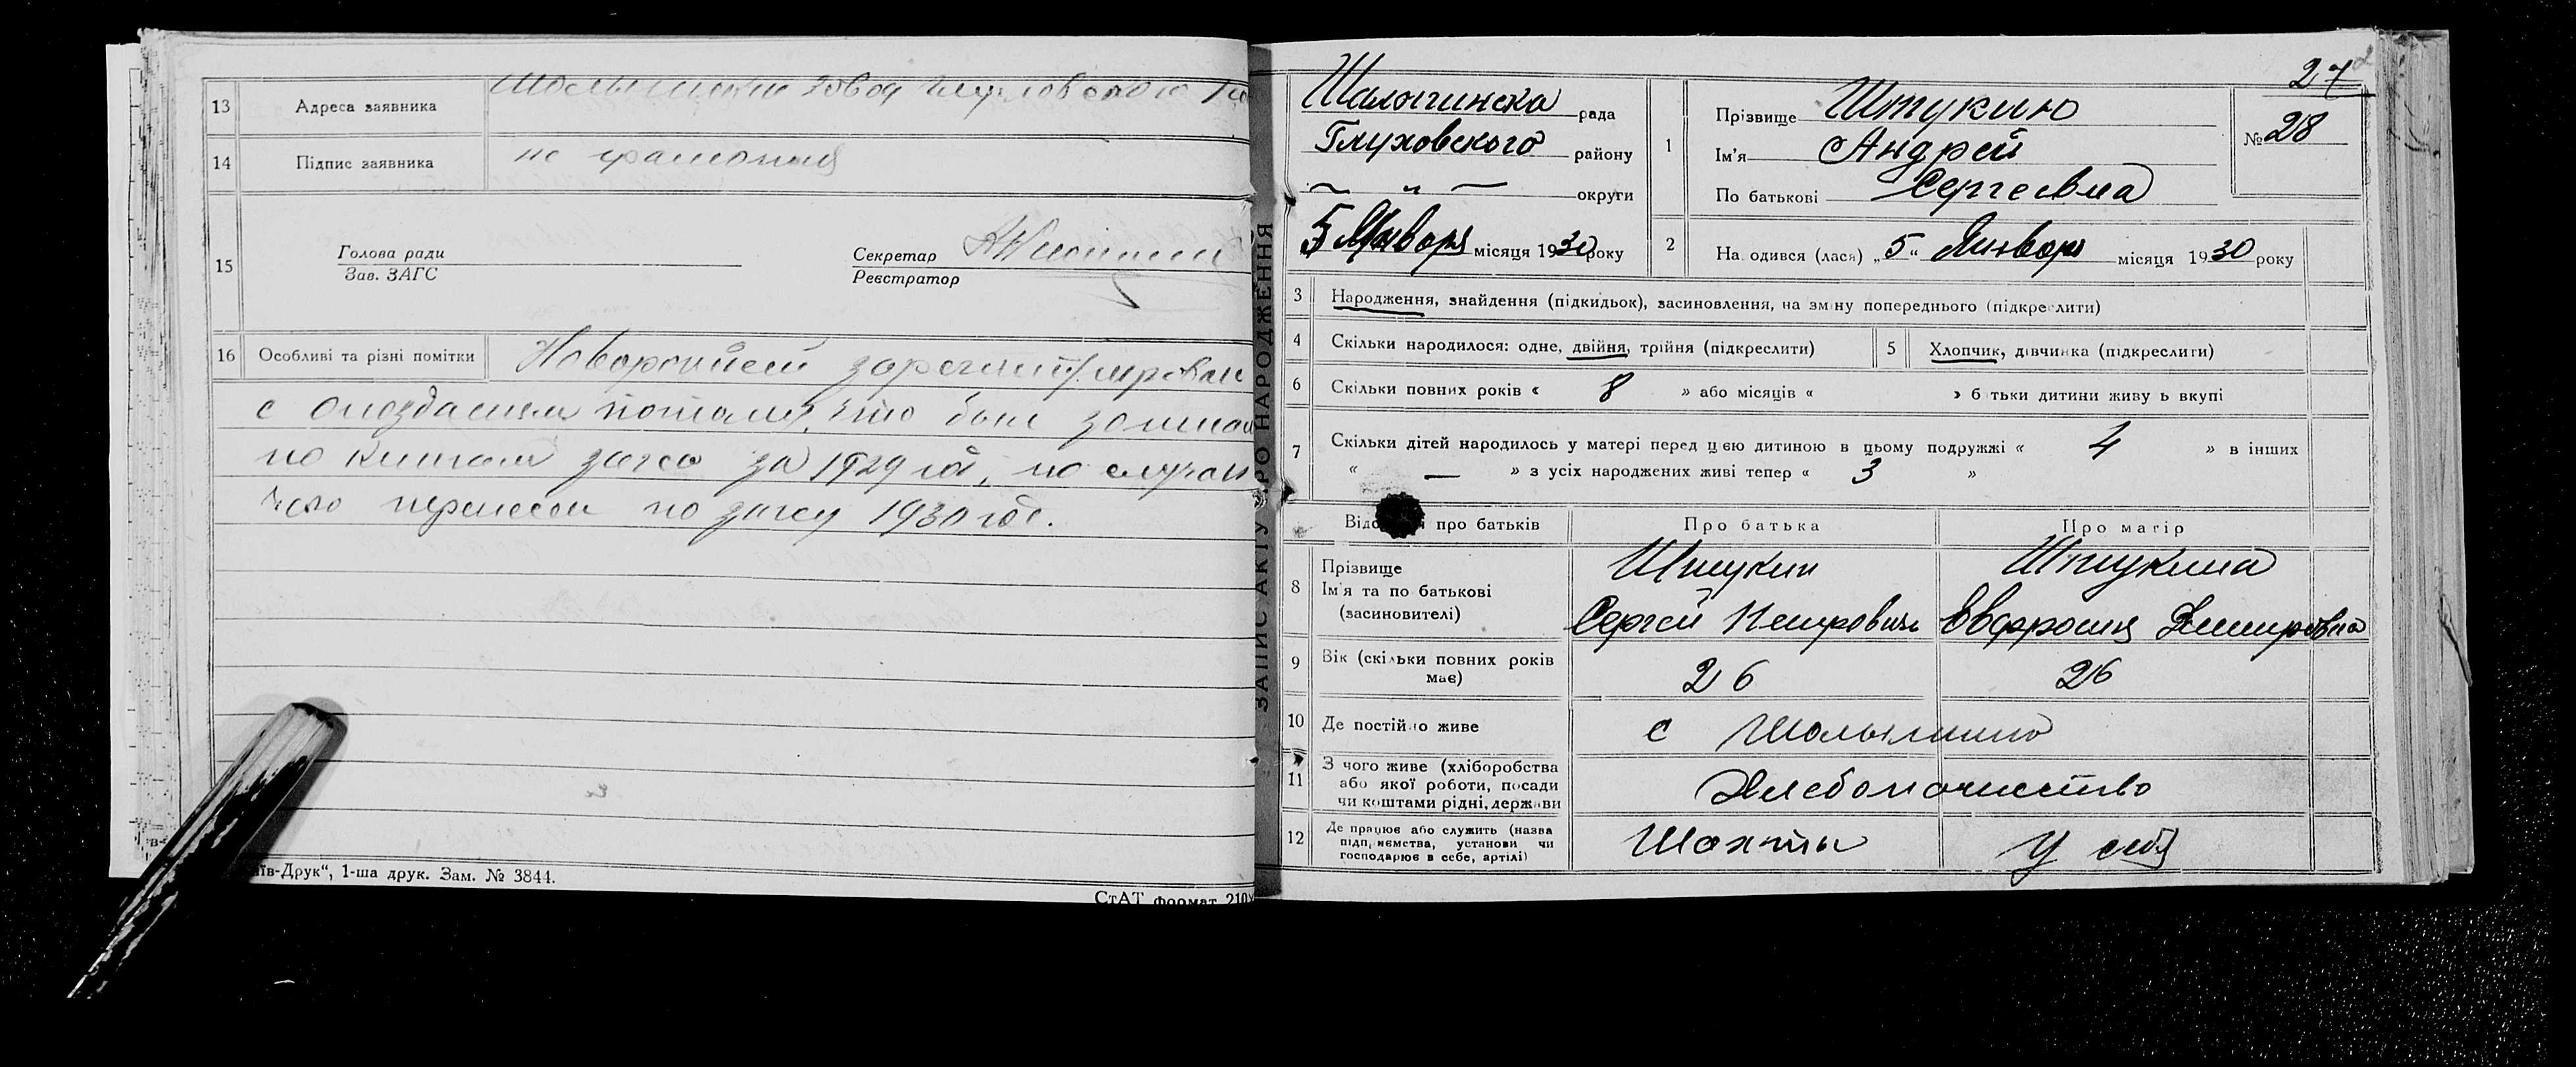 13 Адреса заявника
14 Підпис заявника не
15 Голова ради
Зав. ЗАГС
Секретар
Реєстратор
16 Особливі та різні помітки
с опозданием потому, что был
по книгам загса за 1929 год, по случаю
чего перенесен по загсу 1930 год.
їв-Друк“, 1-ша друк. Зам. № 3844.
СтАТ формат 210
ЗАПИС АКТУ ПРО НАРОДЖЕННЯ
27
рада
Глуховского району
— „ — округи
5 Января місяця 1930 року
1 Прізвище Штукин
Ім'я Андрей
По батькові Сергеевич
№ 28
2 На одився (лася) „5“ Января місяця 1930 року
3 Народження, знайдення (підкидьок), засиновлення, на зміну попереднього (підкреслити)
4 Скільки народилося: одне, двійня, трійня (підкреслити)
5 Хлопчик, дівчинка (підкреслити)
6 Скільки повних років « 8 » або місяців « » б тьки дитини живу ь вкупі
7 Скільки дітей народилось у матері перед цією дитиною в цьому подружжі « 4 » в інших
« — » з усіх народжених живі тепер « 3 »
про батьків Про батька Про матір
8 Прізвище
Ім'я та по батькові
(засиновителі)
Штукин
Сергей Петрович
Штукина
Дмитровна
9 Вік (скільки повних років
має)
26 26
10 Де постійно живе с
11 З чого живе (хліборобства
або якої роботи, посади
чи коштами рідні, держави
12 Де працює або служить (назва
підприємства, установи чи
господарює в себе, артілі)
Шахты У себя